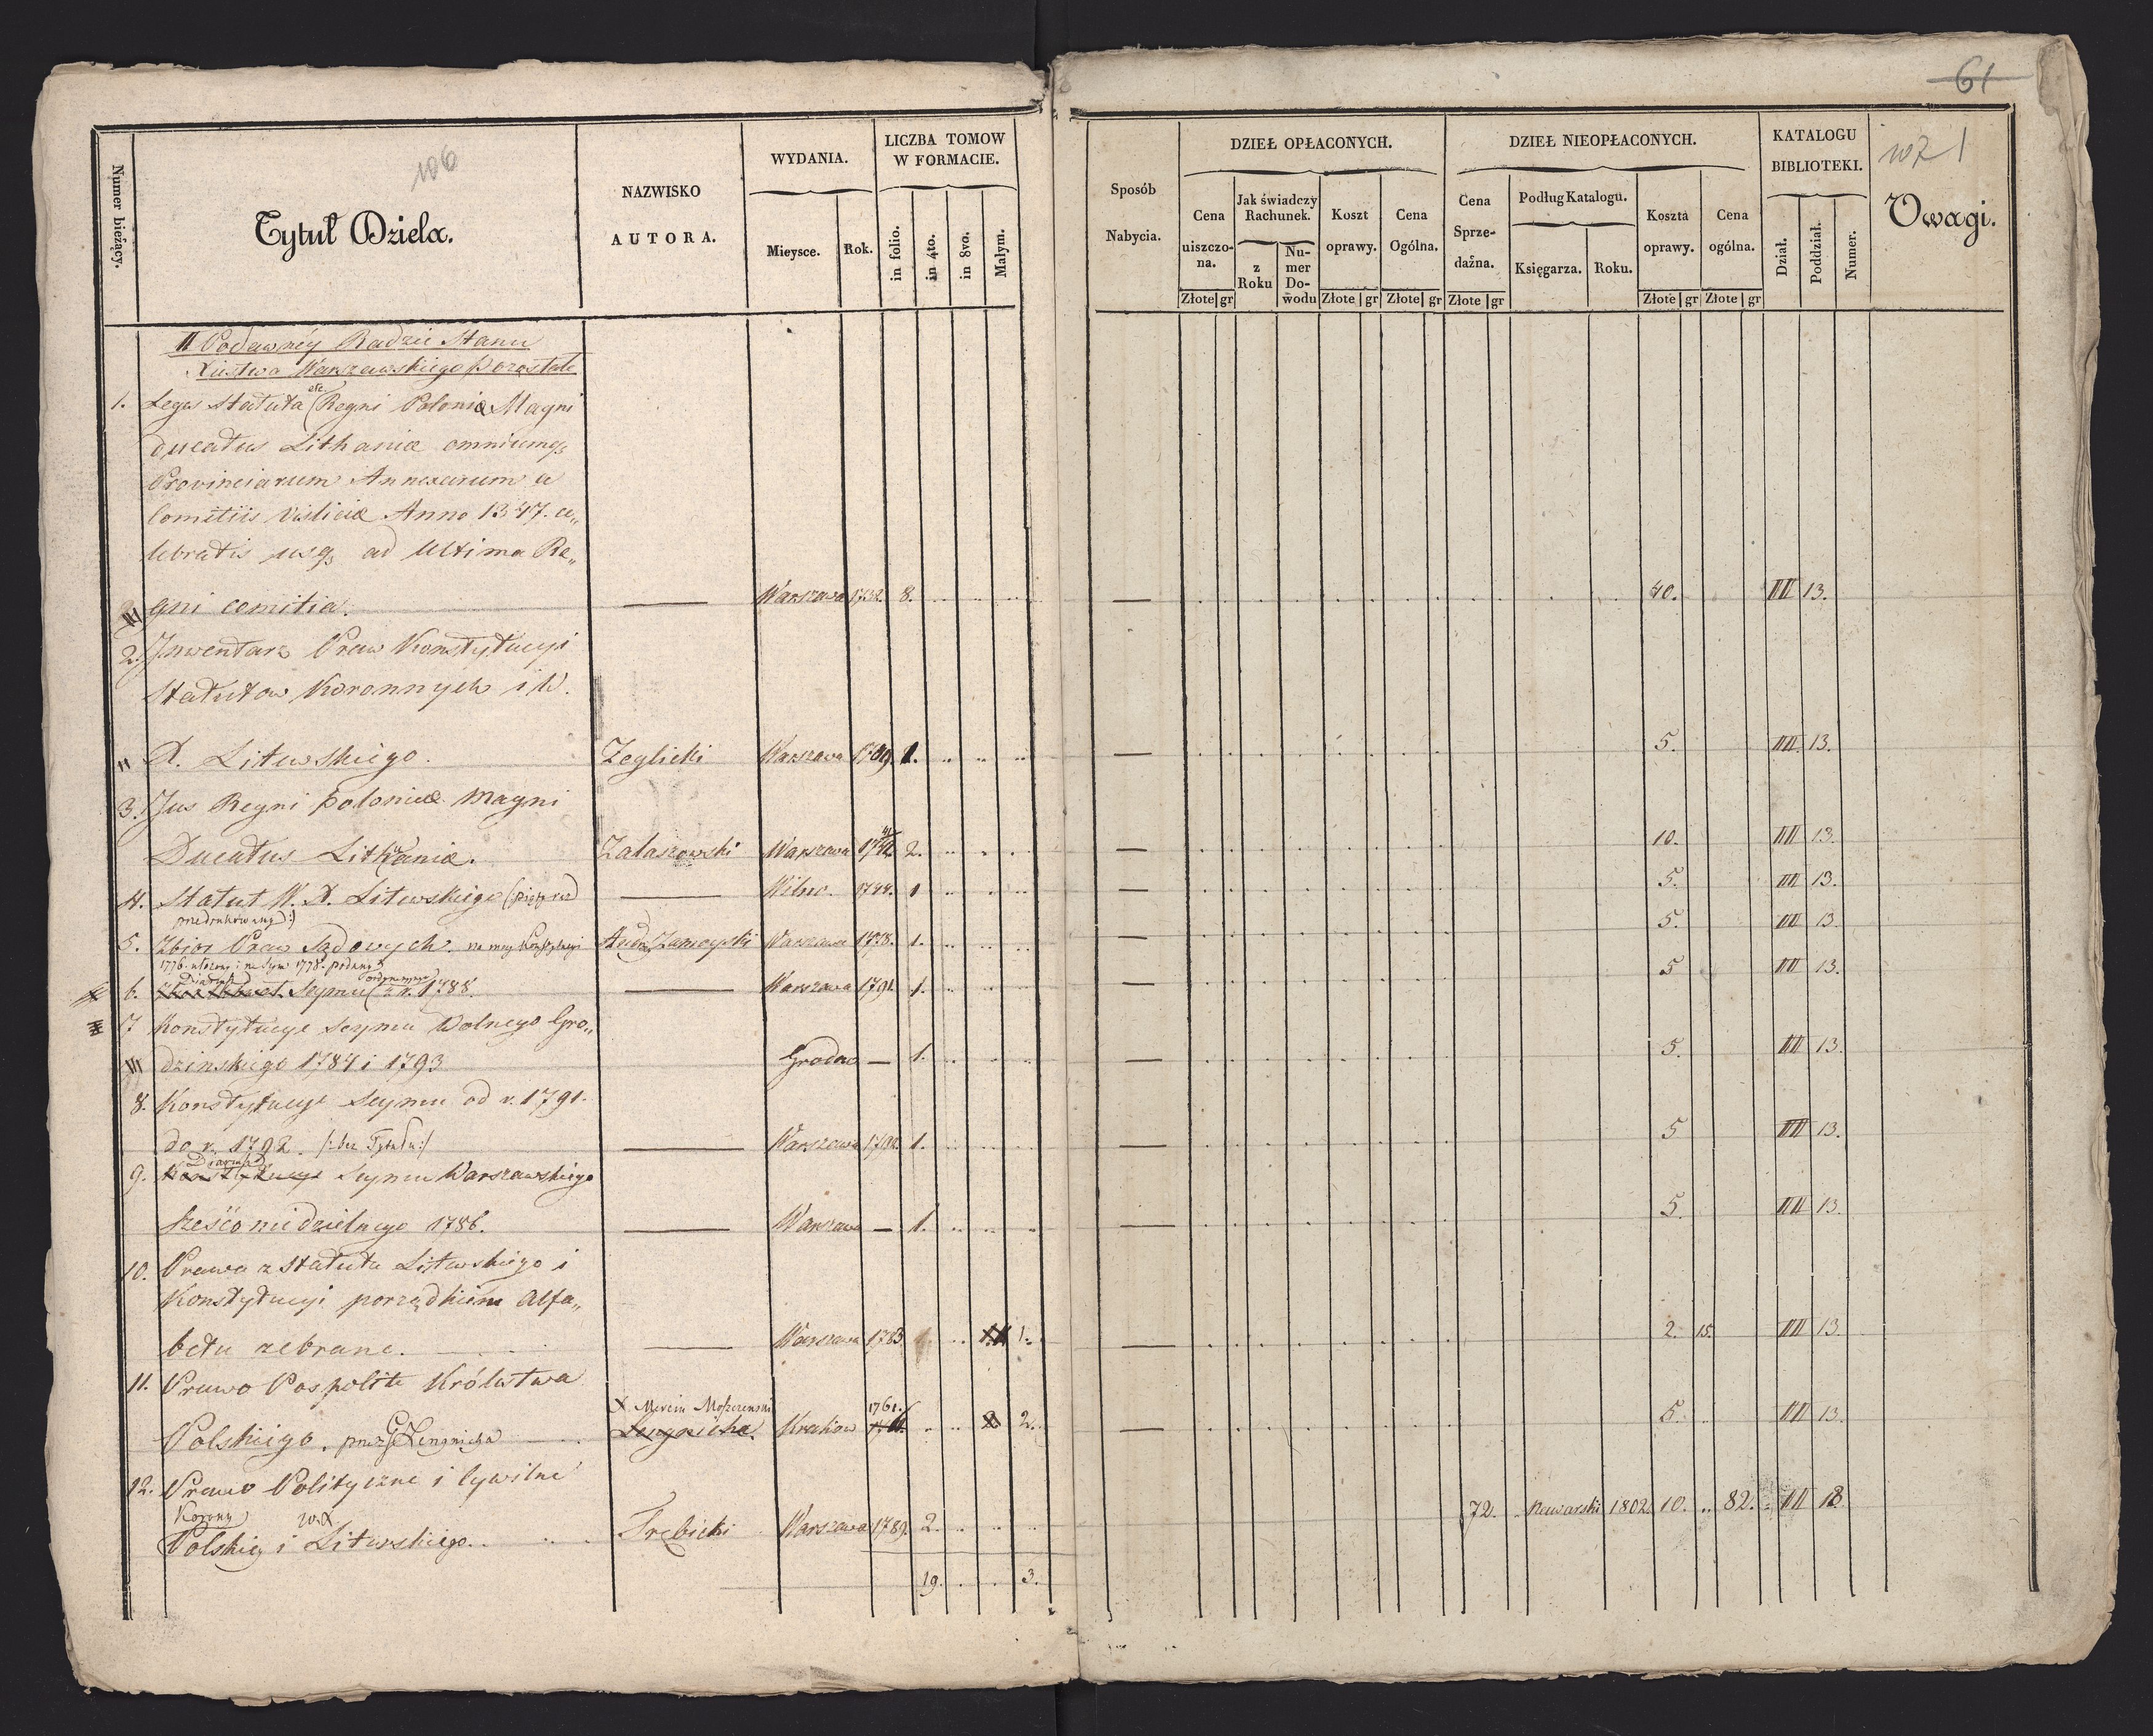 61
106
107 1
Numer bieżący.
Tytuł Dzieła.
NAZWISKO
AUTORA.
WYDANIA.
Mieysce.
Rok.
LICZBA TOMOW
W FORMACIE.
in folio.
in 4to.
in 8vo.
Małym.
Sposób
Nabycia.
DZIEŁ OPŁACONYCH.
Cena
uiszczo-
na.
Jak świadczy
Rachunek.
z
Roku
Nu-
mer
Do-
wodu
Koszt
oprawy.
Cena
Ogólna.
DZIEŁ NIEOPŁACONYCH.
Cena
Sprze-
dażna.
Podług Katalogu.
Księgarza.
Roku.
Koszta
oprawy.
Cena
ogólna.
KATALOGU
BIBLIOTEKI.
Dział.
Poddział.
Numer.
Uwagi.
Złote gr
Złote gr
Złote gr
Złote gr
Złote gr
Złote gr
II Po dawnéy Radzie Stanu
Xięstwa Warszawskiego pozostałe
1. Leges Statuta etc. (Regni Poloniæ Magni
ducatus Lithaniæ omniumq3
Provinciarum Annexarum a
Comitiis Visliciæ Anno 1347. ce„
lebratis usq3 ad Ultima Re„
gni comitia. — Warszawa 1732. 8. — 40. III 13.
2. Inwentarz Praw Konstytucyi
Statutow Koronnych i W.
X. Litewskiego. Zeglicki Warszawa 1.. — 5. III 13.
3. Jus Regni poloniæ Magni
Ducatus Lithuaniæ. Zalaszowski Warszawa 2. — 10. III 13.
4. Statut W. X. Litewskiego (piąty raz
przedrukowany:) — Wilno. 1744. 1 — 5. III 13.
5. Zbior Praw Sądowych na mocy Konstytucyi
1776. ułożony i na Sejm 1778. podany Andrzej Zamoyski Warszawa 1778. 1. — 5. III 13.
6. Diariusz Seymu (ordynaryine z r. 1788. — Warszawa 1791. 1. — 5 III 13.
7 Konstytucye Seymu Wolnego Gro„
dzinskiego 1784 i 1793 Grodno — 1. — 5. III 13.
8. Konstytucye Seymu od r. 1791.
do r. 1792. /:bez Tytułu:/ — Warszawa 1792. 1. — 5 III 13.
9. Diariusz Konstytucye Seymu Warszawskiego
sześcio niedzielnego 1786. — Warszawa — 1. — 5. III 13.
10. Prawa z Statutu Litewskiego i
Konstytucyi porządkiem Alfa„
betu zebrane. — Warszawa 1783. 1. — 2. 15. III 13.
11. Prawo Pospolite Królestwa
Polskiego. przez G. Lengnicha X Marcin Moszczenski Lengnicha. Krakow 1761. 2. 2. — 5. III 13.
12. Prawo Polityczne i Cywilne
Korony W.X.
Polskiey i Litewskiego. Trębicki Warszawa 1789. 2. 72. Nawarski 1802. 10. 82. III 13.
19. 3.